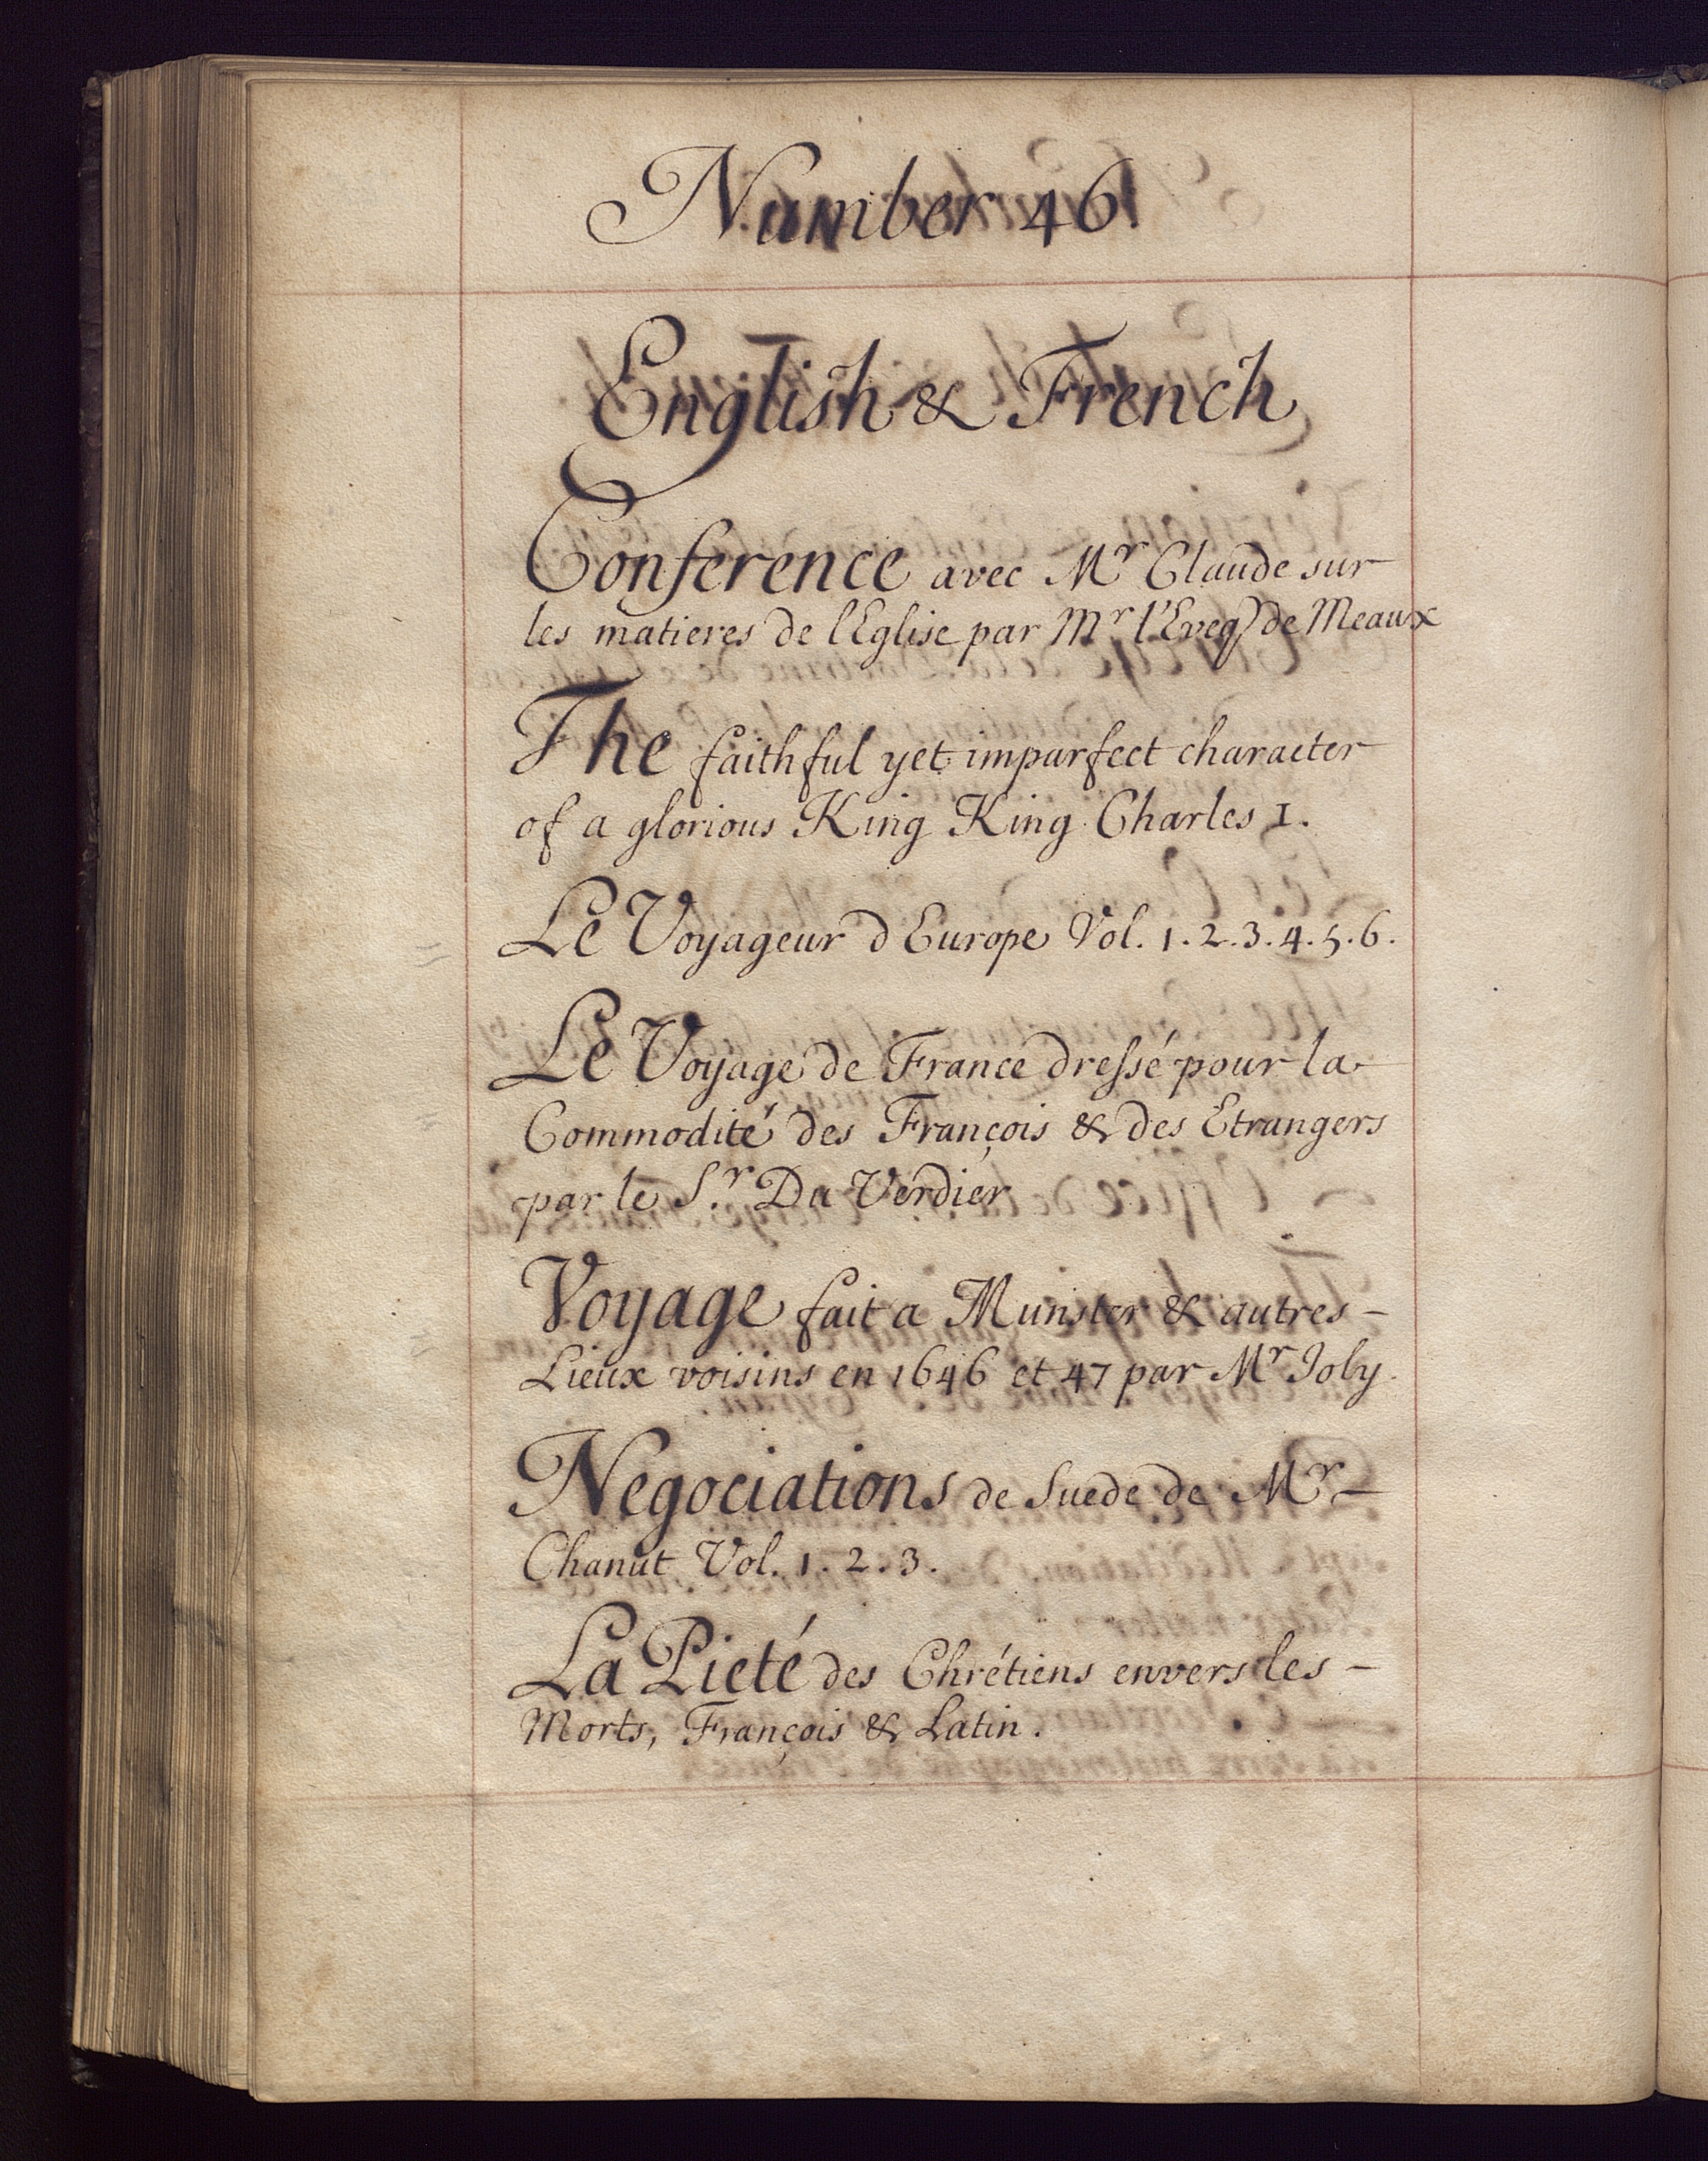 Number 46.
English & French
Conference avec Mr Claude sur
les matieres de l'Eglise par Mr l'Eveq de Meaux
The faithful yet imparfect character
of a glorious King King Charles 1.
Le Voyageur d Europe Vol. 1.2.3.4.5.6.
Le Voyage de France dressé pour la
Commodité des François & des Etrangers
par le Sr. Du Verdier
Voyage fait a Munster & autres -
Lieux voisins en 1646 et 47 par Mr Joly.
Negociations de Suede de Mr -
Chanut Vol. 1.2.3.
La Pieté des Chrétiens envers les -
Morts, François & Latin.